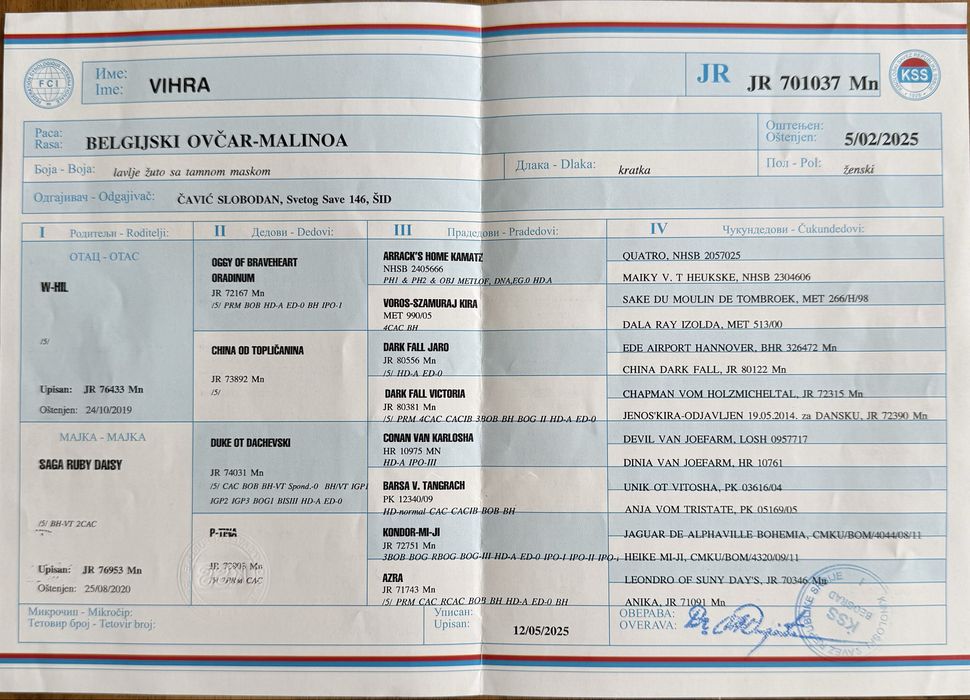 FCI
Име:
Ime:
VIHRA
JR
JR 701037 Mn
KSS
Раса:
Rasa:
BELGIJSKI OVČAR-MALINOA
Оштењен:
Oštenjen:
5/02/2025
Боја - Boja:
lavlje žuto sa tamnom maskom
Длака - Dlaka:
kratka
Пол - Pol:
ženski
Одгајивач - Odgajivač:
ČAVIĆ SLOBODAN, Svetog Save 146, ŠID
I Родитељи - Roditelji:
II Дедови - Dedovi:
III Прадедови - Pradedovi:
IV Чукундедови - Čukundedovi:
ОТАЦ - OTAC
W-HIL
/5/
Upisan: JR 76433 Mn
Oštenjen: 24/10/2019
МАЈКА - MAJKA
SAGA RUBY DAISY
/5/ BH-VT 2CAC
Upisan: JR 76953 Mn
Oštenjen: 25/08/2020
OGGY OF BRAVEHEART
ORADINUM
JR 72167 Mn
/5/ PRM BOB HD-A ED-0 BH IPO-1
CHINA OD TOPLIČANINA
JR 73892 Mn
/5/
DUKE OT DACHEVSKI
JR 74031 Mn
/5/ CAC BOB BH-VT Spond.-0 BH/VT IGP1
IGP2 IGP3 BOG1 BISIII HD-A ED-0
ARRACK'S HOME KAMATZ
NHSB 2405666
PH1 & PH2 & OBJ METLOF, DNA,EG.0 HD-A
VOROS-SZAMURAJ KIRA
MET 990/05
4CAC BH
DARK FALL JARO
JR 80556 Mn
/5/ HD-A ED-0
DARK FALL VICTORIA
JR 80381 Mn
/5/ PRM 4CAC CACIB 3BOB BH BOG II HD-A ED-0
CONAN VAN KARLOSHA
HR 10975 MN
HD-A IPO-III
BARSA V. TANGRACH
PK 12340/09
HD-normal CAC CACIB BOB BH
KONDOR-MI-JI
JR 72751 Mn
3BOB BOG RBOG BOG-III HD-A ED-0 IPO-I IPO-II IPO-
AZRA
JR 71743 Mn
/5/ PRM CAC RCAC BOB BH HD-A ED-0 BH
QUATRO, NHSB 2057025
MAIKY V. T HEUKSKE, NHSB 2304606
SAKE DU MOULIN DE TOMBROEK, MET 266/H/98
DALA RAY IZOLDA, MET 513/00
EDE AIRPORT HANNOVER, BHR 326472 Mn
CHINA DARK FALL, JR 80122 Mn
CHAPMAN VOM HOLZMICHELTAL, JR 72315 Mn
JENOS'KIRA-ODJAVLJEN 19.05.2014. za DANSKU, JR 72390 Mn
DEVIL VAN JOEFARM, LOSH 0957717
DINIA VAN JOEFARM, HR 10761
UNIK OT VITOSHA, PK 03616/04
ANJA VOM TRISTATE, PK 05169/05
JAGUAR DE ALPHAVILLE BOHEMIA, CMKU/BOM/4044/08/11
HEIKE MI-JI, CMKU/BOM/4320/09/11
LEONDRO OF SUNY DAY'S, JR 70346 Mn
ANIKA, JR 71091 Mn
Микрочип - Mikročip:
Тетовир број - Tetovir broj:
Уписан:
Upisan:
12/05/2025
ОВЕРАВА:
OVERAVA:
KSS
BEOGRAD